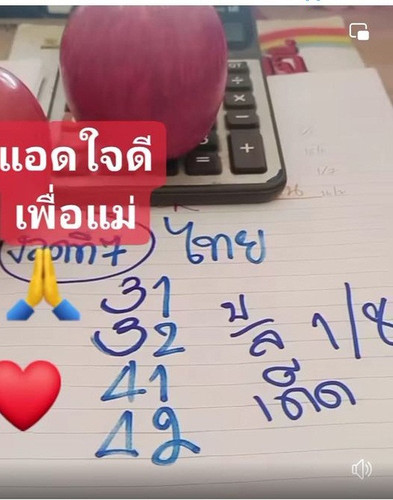 แอดใจดี
เพื่อแม่
งวดที่ 7 ไทย
31
32
41
42
บ/ล 1/8
เด็ด
+
×
-
=
+